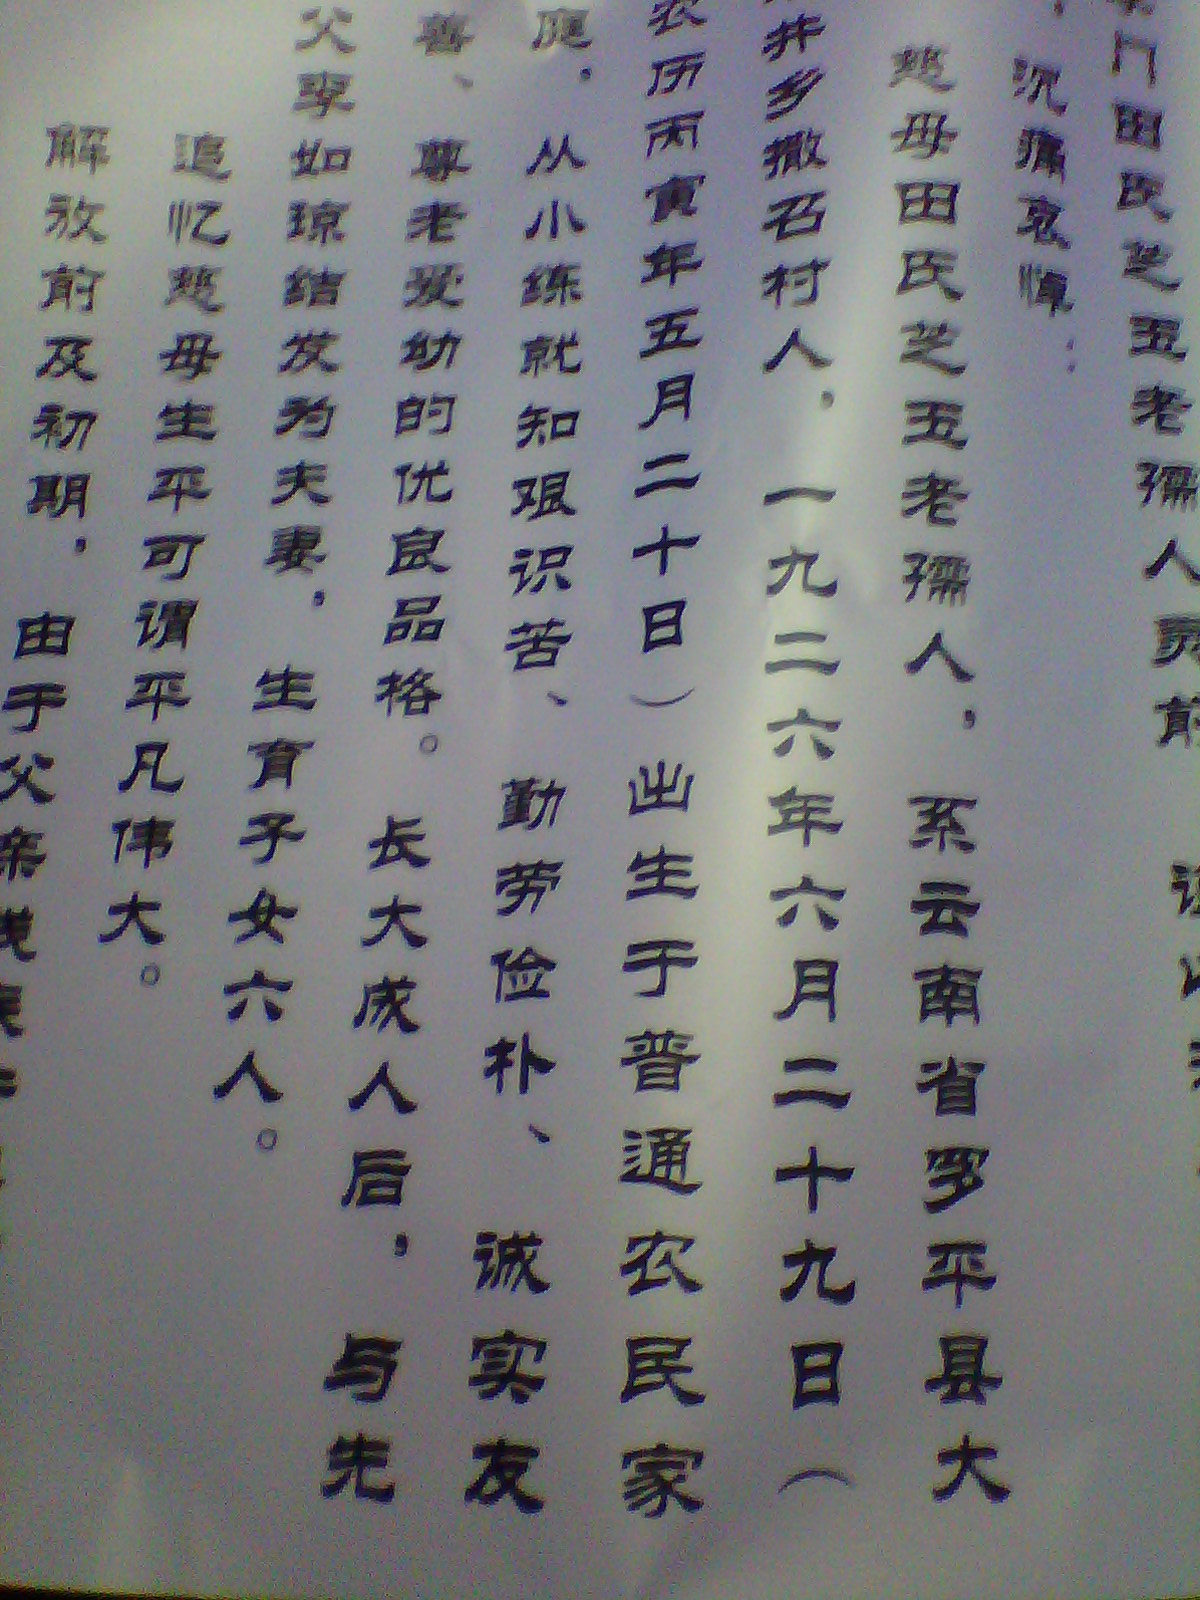 门田氏芝玉老孺人灵前
沉痛哀悼：
慈母田氏芝玉老孺人，系云南省罗平县大
井乡撒召村人，一九二六年六月二十九日（
农历丙寅年五月二十日）出生于普通农民家
庭，从小练就知艰识苦、勤劳俭朴、诚实友
善、尊老爱幼的优良品格。长大成人后，与先
父李如琼结发为夫妻，生育子女六人。
追忆慈母生平可谓平凡伟大。
解放前及初期，由于父亲